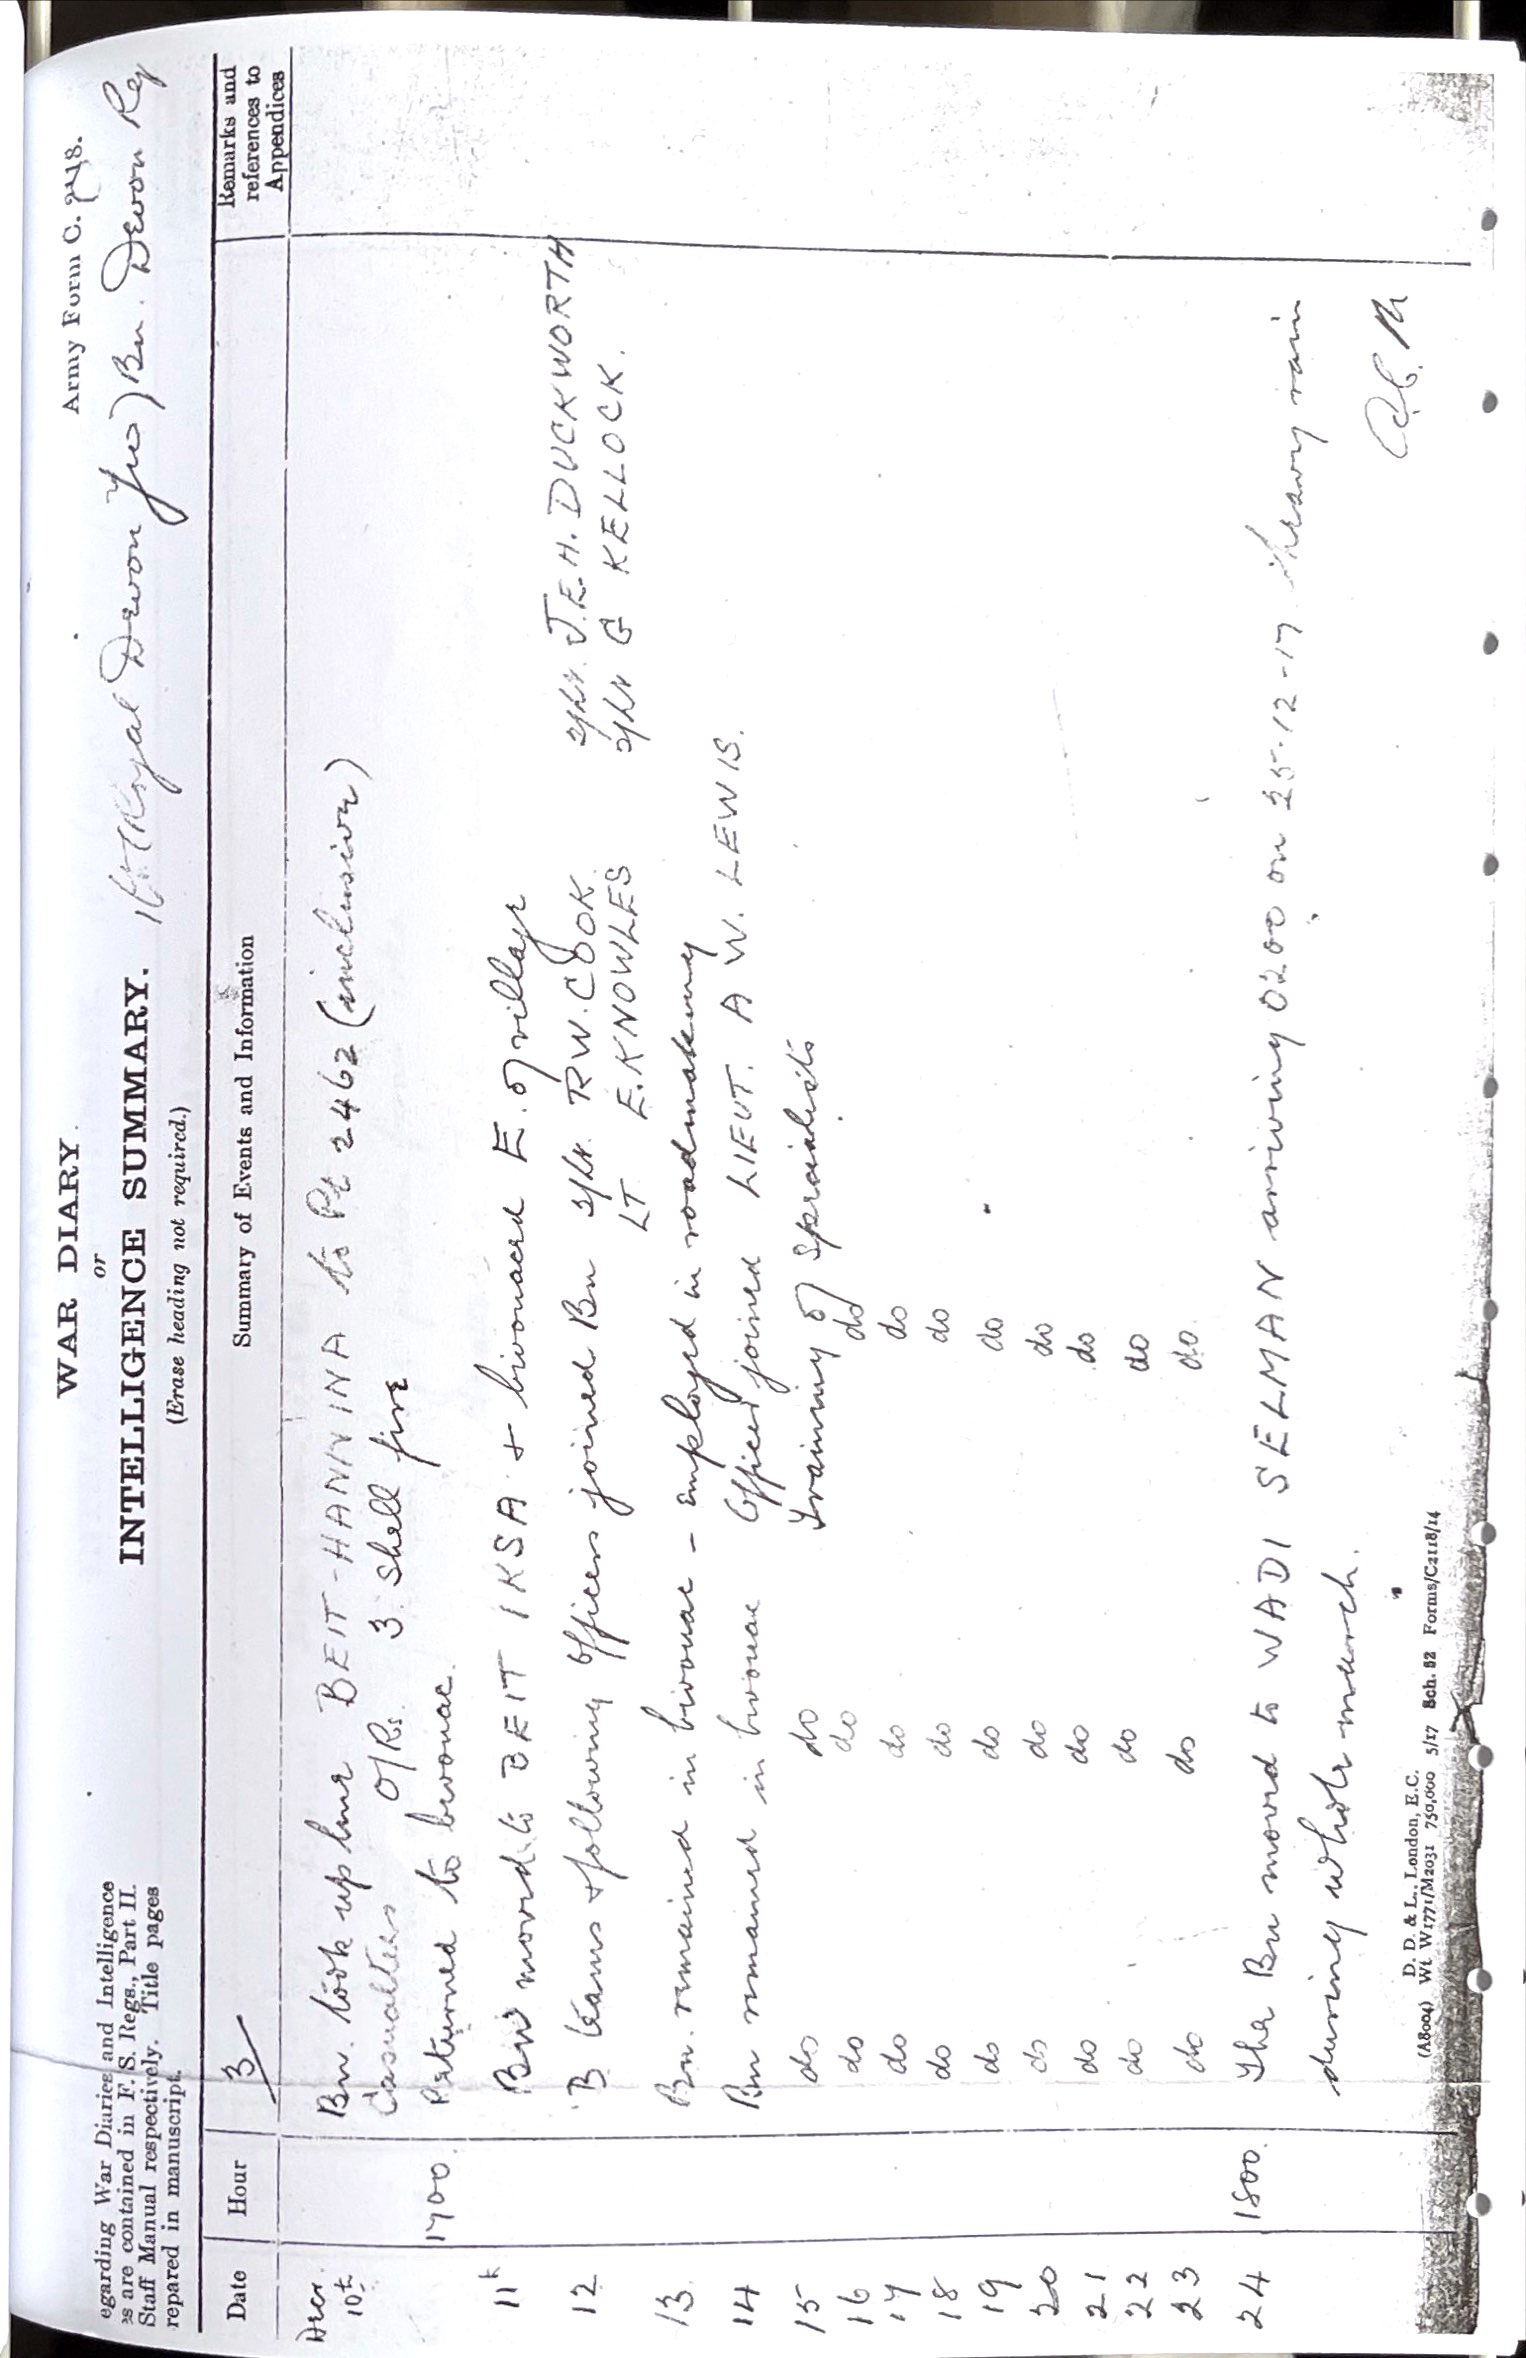 Army Form C. 2118.
WAR DIARY
or
INTELLIGENCE SUMMARY.
(Erase heading not required.)
egarding War Diaries and Intelligence
es are contained in F. S. Regs., Part II.
Staff Manual respectively. Title pages
repared in manuscript.
16th (Royal Devon Yeo) Bn. Devon Reg
3
Date Hour Summary of Events and Information Remarks and references to Appendices
Decr. 10th Bn. took up line BEIT-HANNINA to Pt 2462 (inclusive)
Casualties O/Rs. 3. Shell fire
1700. Returned to bivouac.
11th Bn moved to BEIT IKSA + bivouacd E. of village
12 B teams + following officers joined Bn 2/Lt. R.W. COOK. 2/Lt. J.E.H. DUCKWORTH
LT E. KNOWLES 2/Lt G KELLOCK.
13. Bn. remained in bivouac - employed in roadmaking
14 Bn remained in bivouac Officer joined LIEUT. A W. LEWIS.
15 do do Training of Specialists
16 do do do
17 do do do
18 do do do
19 do do do
20 do do do
21 do do do
22 do do do
23 do do do.
24 1800. The Bn moved to WADI SELMAN arriving 0200 on 25-12-17. heavy rain
during whole march.
D. D. & L., London, E.C.
(A8004) Wt W1771/M2031 750,000 5/17 Sch. 82 Forms/C2118/14